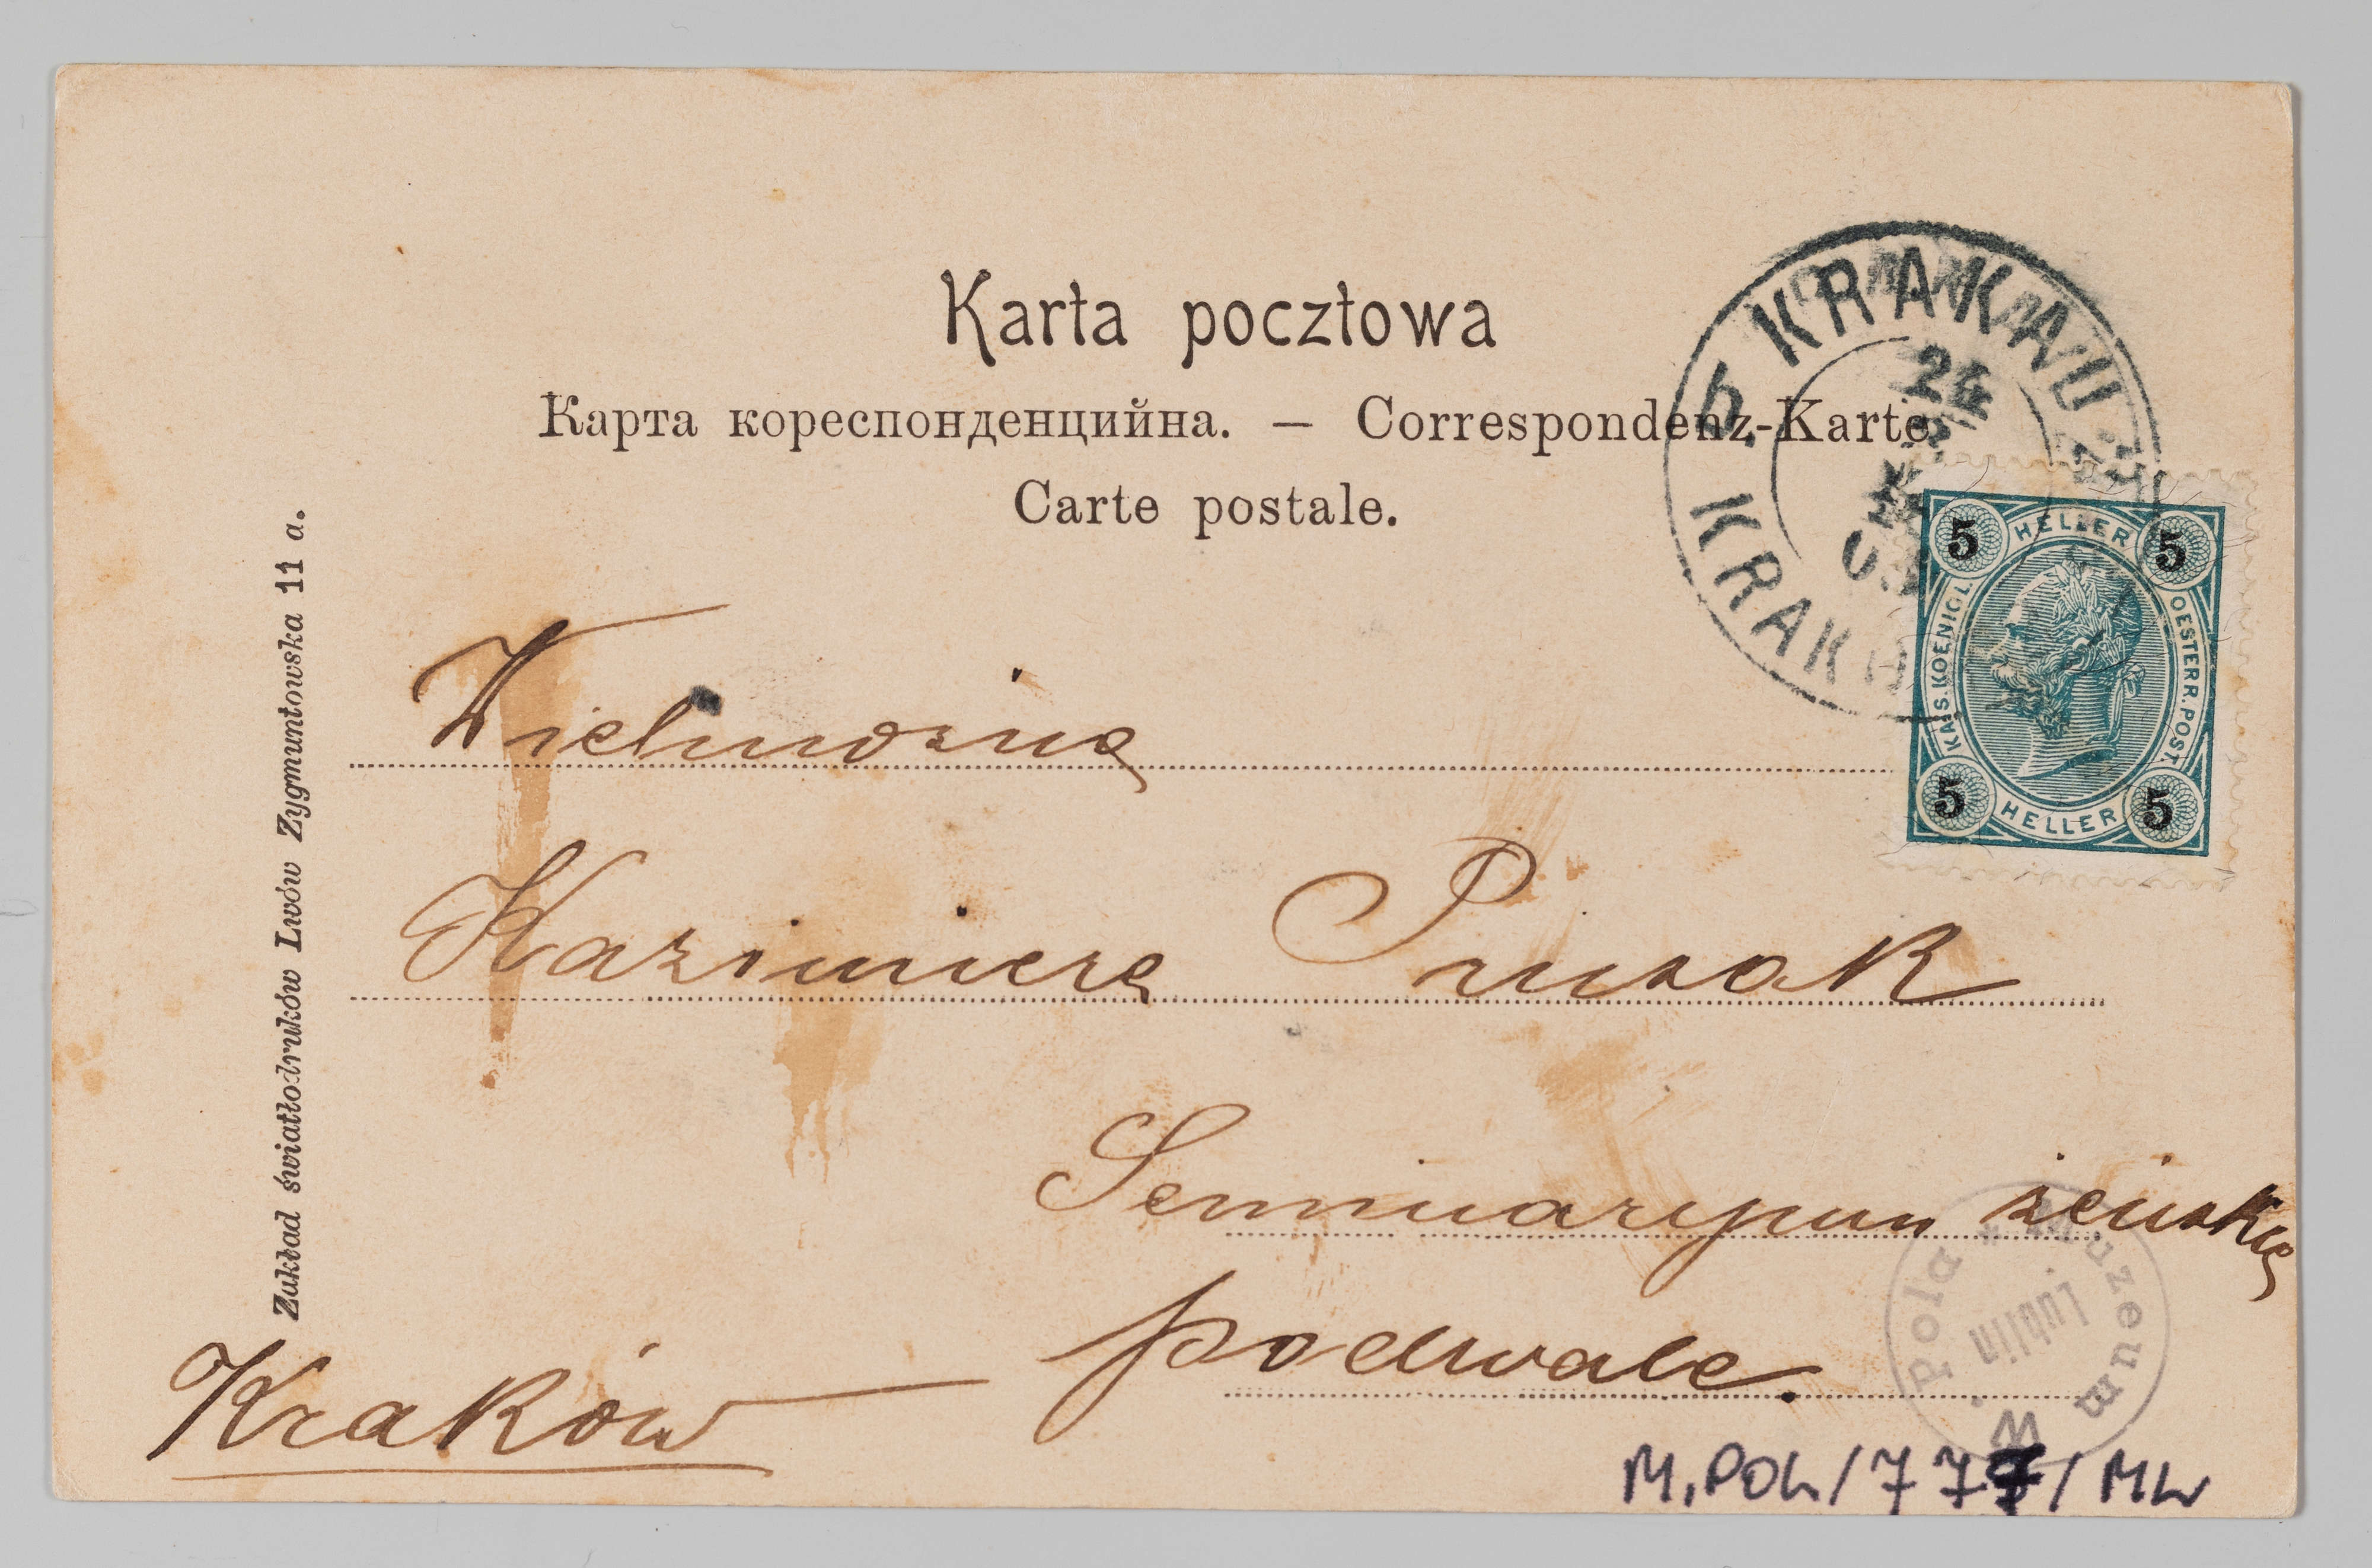 Karta pocztowa
Карта кореспонденцийна. — Correspondenz-Karte
Carte postale.
KRAKAU
KRAK
24
5 HELLER 5
KAIS. KOENIGL. OESTERR. POST.
5 HELLER 5
Zakład światłodruków Lwów Zygmuntowska 11 a.
Wielmożna
Kazimiera
Seminaryum żeńskie
podwale.
Kraków
Muzeum W. Pola *
Lublin
M.POL/777/ML